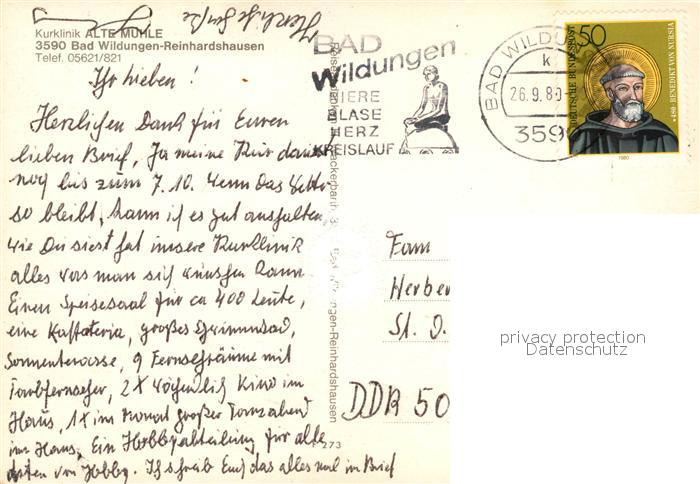 Herzliche Grüße
Kurklinik ALTE MÜHLE
3590 Bad Wildungen-Reinhardshausen
Telef. 05621/821
Ihr lieben!
Herzlichen Dank für Euren
lieben Brief, Ja meine Kur dauert
noch bis zum 7.10. Wenn das Wetter
so bleibt, kann ich es gut aushalten
wie Du siest hat unsere Kurklinik
alles was man sich wünschen kann
Einen Speisesaal für ca 400 Leute,
eine Kaffateria, großes Schwimmbad,
Sonnenterasse, 9 Fernsehräume mit
Farbfernseher, 2X wöchenlich Kino im
Haus, 1X im Monat großer Tanzabend
im Haus, Ein Hobbyabteilung für alle
arten von Hobby. Ich schreib Euch das alles mal im Brief
BAD
Wildungen
NIERE
BLASE
HERZ
KREISLAUF
BAD WILDUN
k
26.9.80
3590
50
DEUTSCHE BUNDESPOST
*480 · BENEDIKT VON NURSIA
1980
ackerbarth 3
ngen-Reinhardshausen
F 273
Fam
Herber
St. O.
DDR 50
privacy protection
Datenschutz